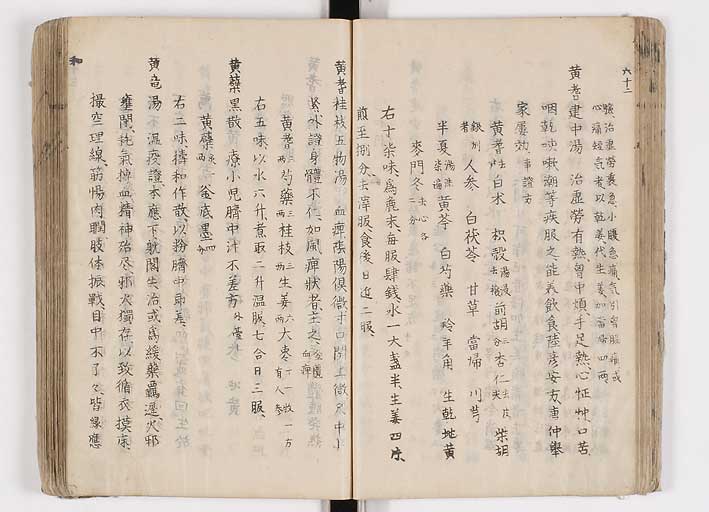 六十二
驗治虚勞裏急小腹急痛气引胷脇痛或
心痛短气者以乾姜代生姜加當帰四両
黄耆建中湯 治虚勞有熱胷中煩手足熱心怔忡口苦
咽乾咳嗽潮等疾服之能美飲食陸彦安方唐仲舉
家屡効 事證方
黄耆 白朮 枳殻 前胡 杏仁 柴胡
銀別 人参 白茯苓 甘草 當帰 川芎
半夏 黄芩 白芍藥 羚羊角 生乾地黄
麥門冬 去心各二分
右十柒味為麁末毎服肆錢水一大盞半生姜四片
煎至捌分去滓服食後日进二服
黄耆桂枝五物湯 血痺陰陽俱微寸口関上微尺中
緊外證身體不仁如風痺状者主之 金匱血痺
黄耆三両 芍藥三両 桂枝三両 生姜六両 大枣十二枚 一方有人参
右五味以水六升煮取二升温服七合日三服
黄蘗黒散 療小児臍中汁不差方 外臺
黄蘗一両 釜底墨四分
右二味擣和作散以粉臍中即差
黄竜湯 不温疫證本應下躭閣失治或為緩藥羈遲火邪
壅閉耗氣搏血精神殆尽邪火獨存以致循衣摸床
撮空理線筋惕肉瞤肢体振戦目中不了々皆縁應
和